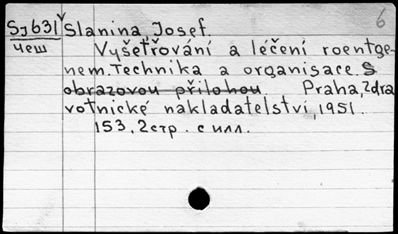 Sj631 Slanina, Josef. 6
чеш Vyšetřování a léčení roentge-
nem. Technika a organisace. S
obrazovou přílohou. Praha, Zdra
votnické nakladatelství, 1951.
153, 2 стр. с илл.